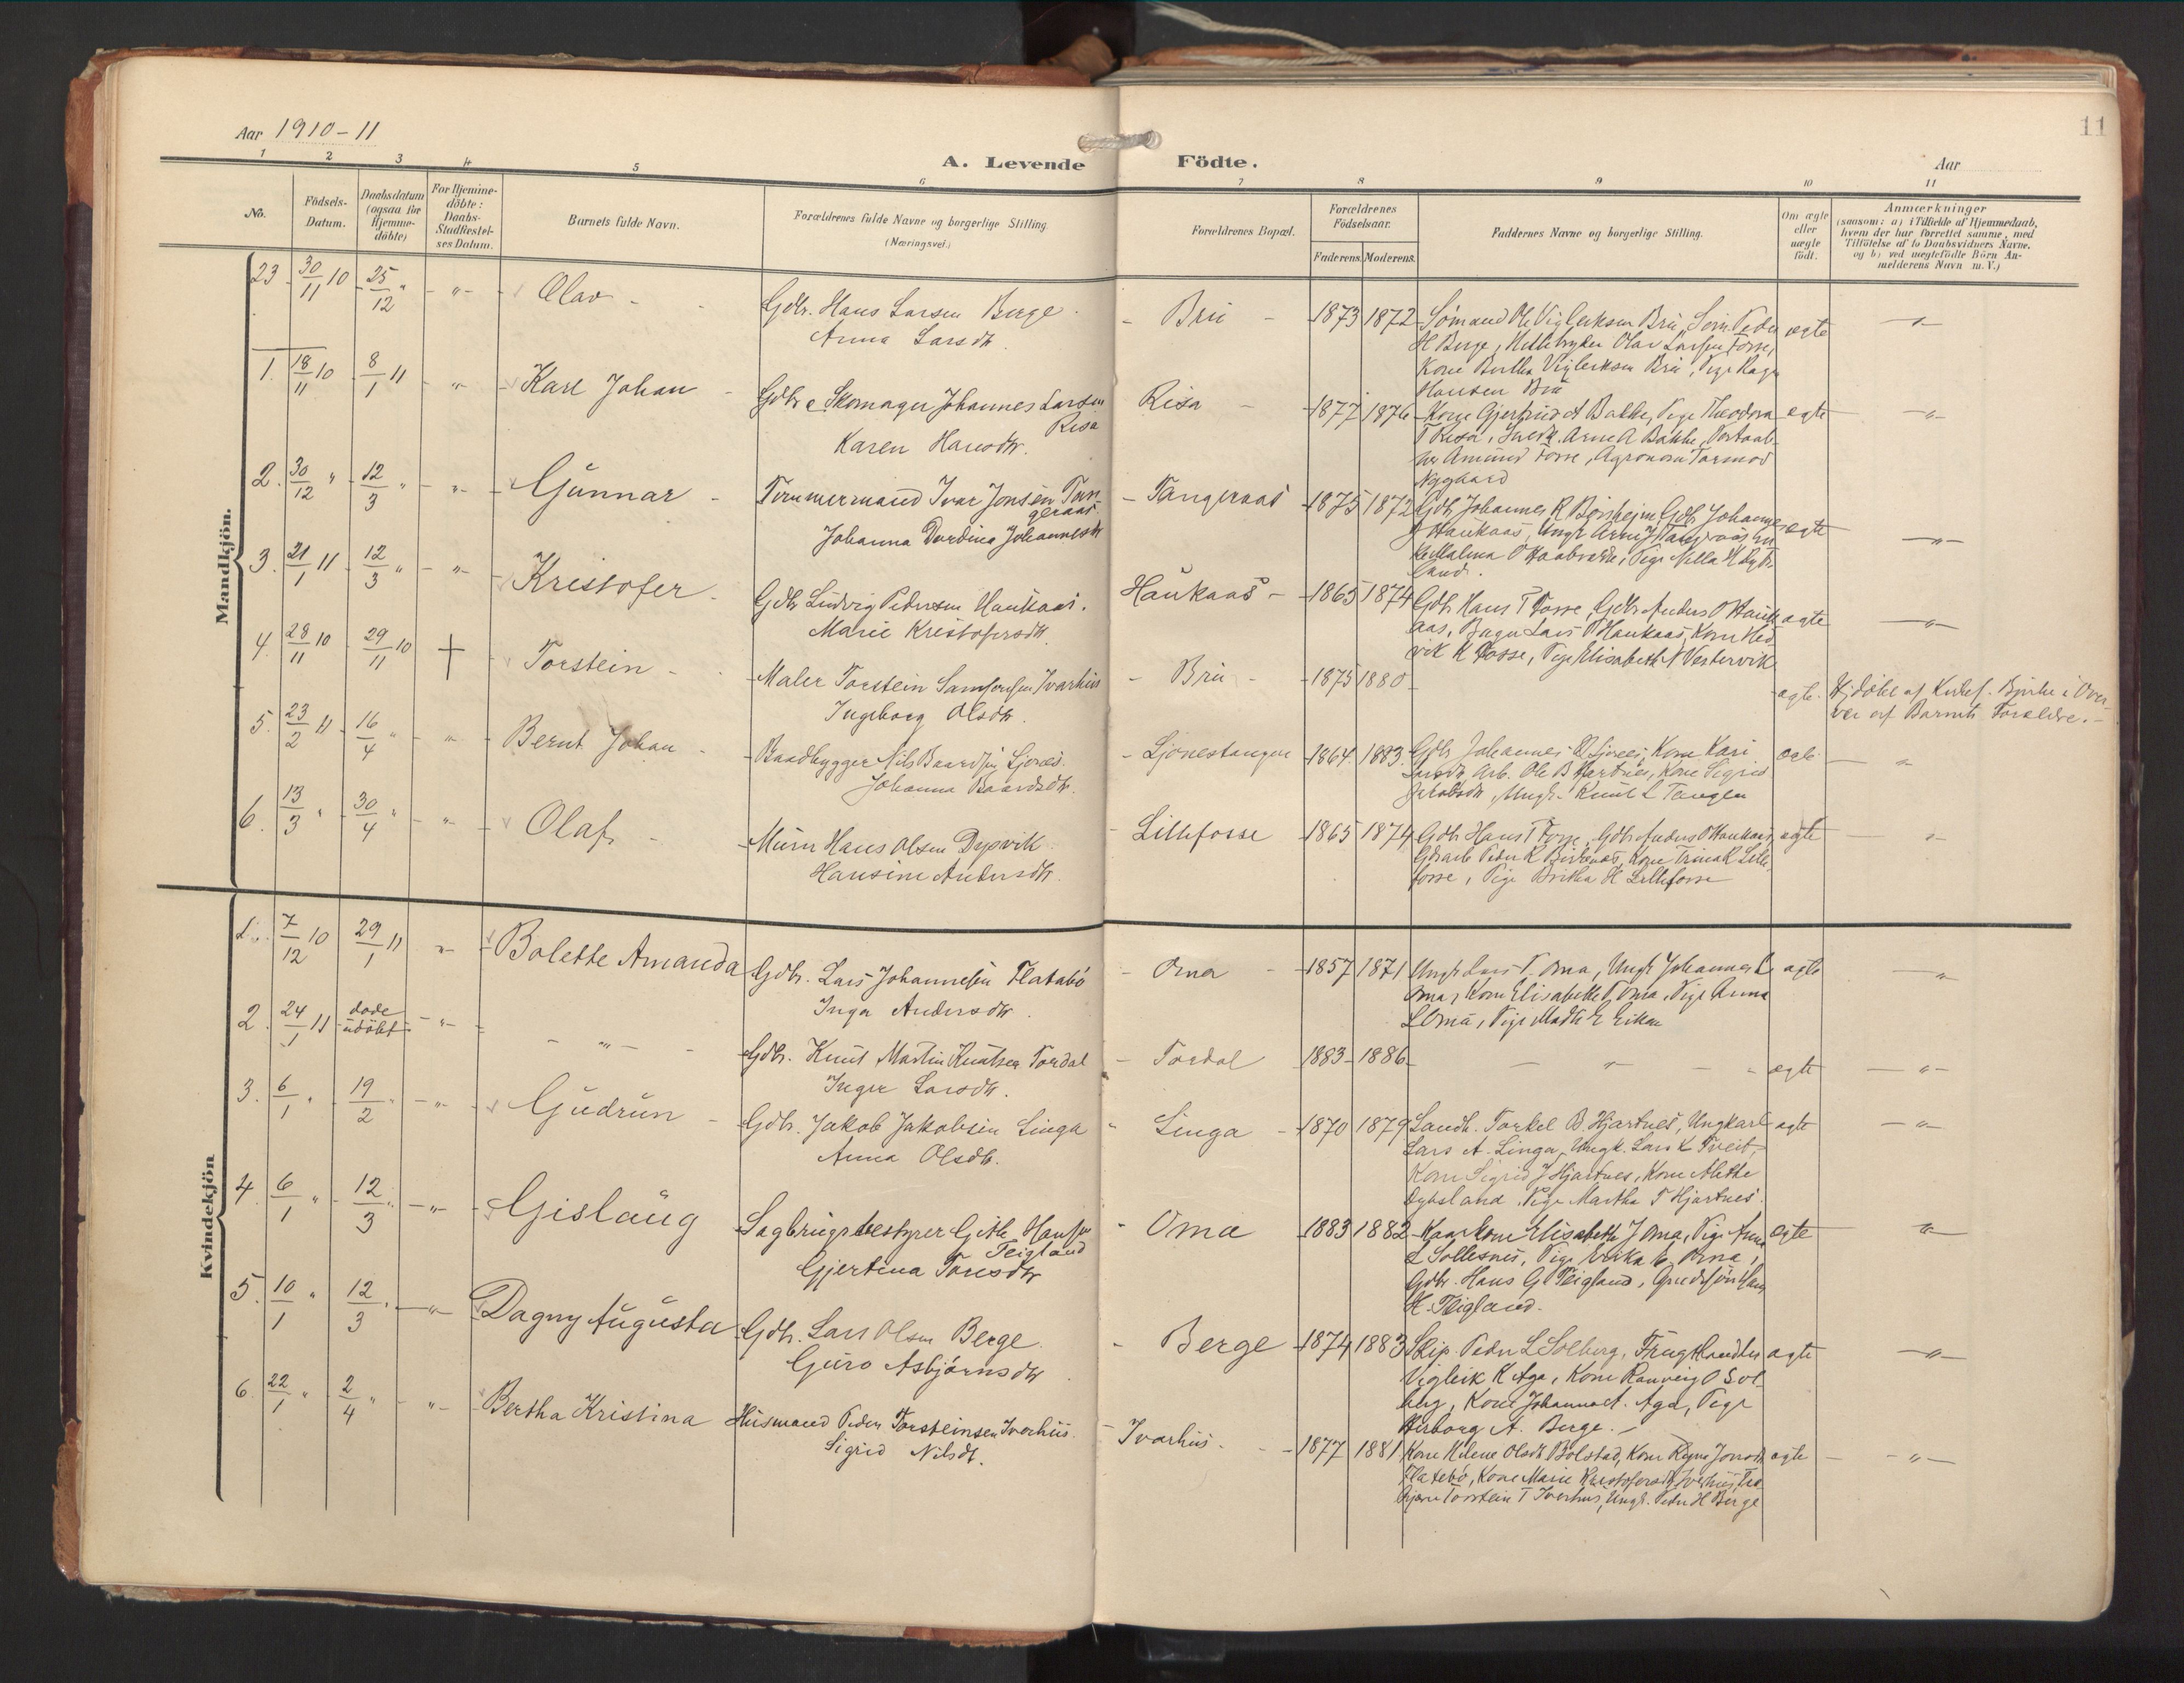 Aar 1910-11
11
A. Levende Födte.
Aar
1 2 3 4 5 6 7 8 9 10 11
No.
Födsels-
Datum.
Daabsdatum
(ogsaa for
Hjemme-
döbte)
For Hjemme-
döbte:
Daabs-
Stadfæstel-
ses Datum.
Barnets fulde Navn.
Forældrenes fulde Navne og borgerlige Stilling
(Næringsvei.)
Forældrenes Bopæl.
Forældrenes
Födselsaar.
Faderens. Moderens.
Faddernes Navne og borgerlige Stilling.
Om ægte
eller
uægte
födt.
Anmærkninger
(saasom: a) i Tilfælde af Hjemmedaab,
hvem der har forrettet samme, med
Tilföielse af to Daabsvidners Navne,
og b) ved uægtefödte Börn An-
melderens Navn m. V.)
Mandkjön.
23 30/11 10 25/12 " - " - Olav - Gdbr. Hans Larsen Berge
Anna Larsdtr.
- Brú - 1873 1872 Sömand Ole Vigleiksen Brú, Peder
H Berge, Olav Larsen Fosse,
Kone Bertha Vigleiksen Brú, Pige
Hansen Brú
ægte - " -
1. 18/11 10 8/1 11 - " - Karl Johan - Gdbr & Skomager Johannes Larsen
Risa
Karen Hansdtr.
Risa - 1877 1876 Kone Gjertrud A Bakke, Pige Theodora
T Risa, Arne A Bakke,
Amund Fosse, Agronom Tormod
Nygaard
ægte - " -
2. 30/12 " 12/3 " - " - Gúnnar - Tömmermand Ivar Jonsen Tan-
geraas.
Johanna Dordina Johannesdtr
- Tangeraas 1875 1872 Gdbr Johannes R Börsheim, Gdbr Johannes
Haukaas, Ungk Arne J Tangeraas,
Malena O Pige Nilla H
land.
ægte - " -
3. 21/1 11 12/3 " - " - Kristofer - Gdbr Lúdvig Pedersen Haúkaas.
Marie Kristofersdtr
Haúkaas - 1865 1874 Gdbr Hans T Fosse, Gdbr Anders O Hauk-
aas, Lars P Haukaas, Kone Hed-
vik K Fosse, Pige Elisabeth N Vestervik
ægte - " -
4. 28/11 10 29/11 10 † Torstein - Maler Torstein Samsonsen Ivarhús
Ingeborg Olsdtr.
- Brú - 1875 1880 -
ægte. Hj.döbt af Kirkes. Bjerke i Over-
vær af Barnets Forældre. -
5. 23/2 11 16/4 " - " - Bernt Johan - Baadbygger Nils Baardsen Ljones.
Johanna Baardsdtr.
- Ljonestangen 1864 1883. Gdbr Johannes Ljones, Kone Kari
Larsdtr, Arb. Ole B Hjartnes, Kone Sigrid
Jakobsdtr, Ungk. Knut L Tangen
ægte - " -
6. 13/3 " 30/4 " - " - Olaf - Múrer Hans Olsen Dysvik
Hansine Andersdtr.
- Lillefosse 1865 1874 Gdbr Hans T Fosse, Gdbr Anders O Haukaas,
Peder K Birkenes, Kone Trina K Lille-
fosse, Pige Britha H Lillefosse
ægte - " -
Kvindekjön
1. 7/12 10 29/1 11 " - Bolette Amanda Gdbr. Lars Johannesen Flatabö
Inga Andersdtr.
- Oma - 1857 1871 Ungk Lars T. Oma, Ungk Johannes L
Oma, Kone Elisabeth T Oma, Pige Anna
L Oma, Pige Marthe E Eiken
ægte - " -
2. 24/1 11 döde
udöbt - " - - " - Gdbr. Knút Martin Knútsen Tordal
Inger Larsdtr.
- Tordal 1883 - 1886 - - " - ægte - " -
3. 6/1 " 19/2 " - " - Gúdrún - Gdbr. Jakob Jakobsen Linga
Anna Olsdtr.
" Linga - 1870 1879 Landh. Torkel B. Hjartnes, Ungkarl
Lars A. Linga, Ungk. Lars K Tveit,
Kone Sigrid J Hjartnes, Kone Alette
Dybsland, Pige Martha T Hjartnes.
ægte - " -
4. 6/1 " 12/3 " - " - Gisláug Sagbrúgsbestyrer Gitle Hansen
Teigland
Gjertina Tonesdtr
- Oma 1883 1882 Kone Elisabeth J Oma, Pige Anna
L Sollesnes, Pige Erika E. Oma,
Gdbr. Hans G. Teigland, Hans
H. Teigland.
ægte - " -
5. 10/1 " 12/3 " - " - Dagny Aúgústa Gdbr. Lars Olsen Berge
Gúro Asbjörnsdtr
- Berge 1874 1883 Skip. Peder L Solberg, Frugthandler
Vigleik K Aga, Kone Ranveig O Sol-
berg, Kone Johanna A. Aga, Pige
Herborg A. Berge. -
ægte - " -
6. 22/1 " 2/4 " - " - Bertha Kristina Húsmand Peder Torsteinsen Ivarhús.
Sigrid Nilsdtr.
- Ivarhús. - 1877 1881 Kone Helene Olsdtr Bolstad, Kone Ragna Jonsdtr
Flatebö, Kone Marie Kristofersdtr Ivarhús,
Torstein T Ivarhus, Ungk. Peder H Berge
ægte - " -